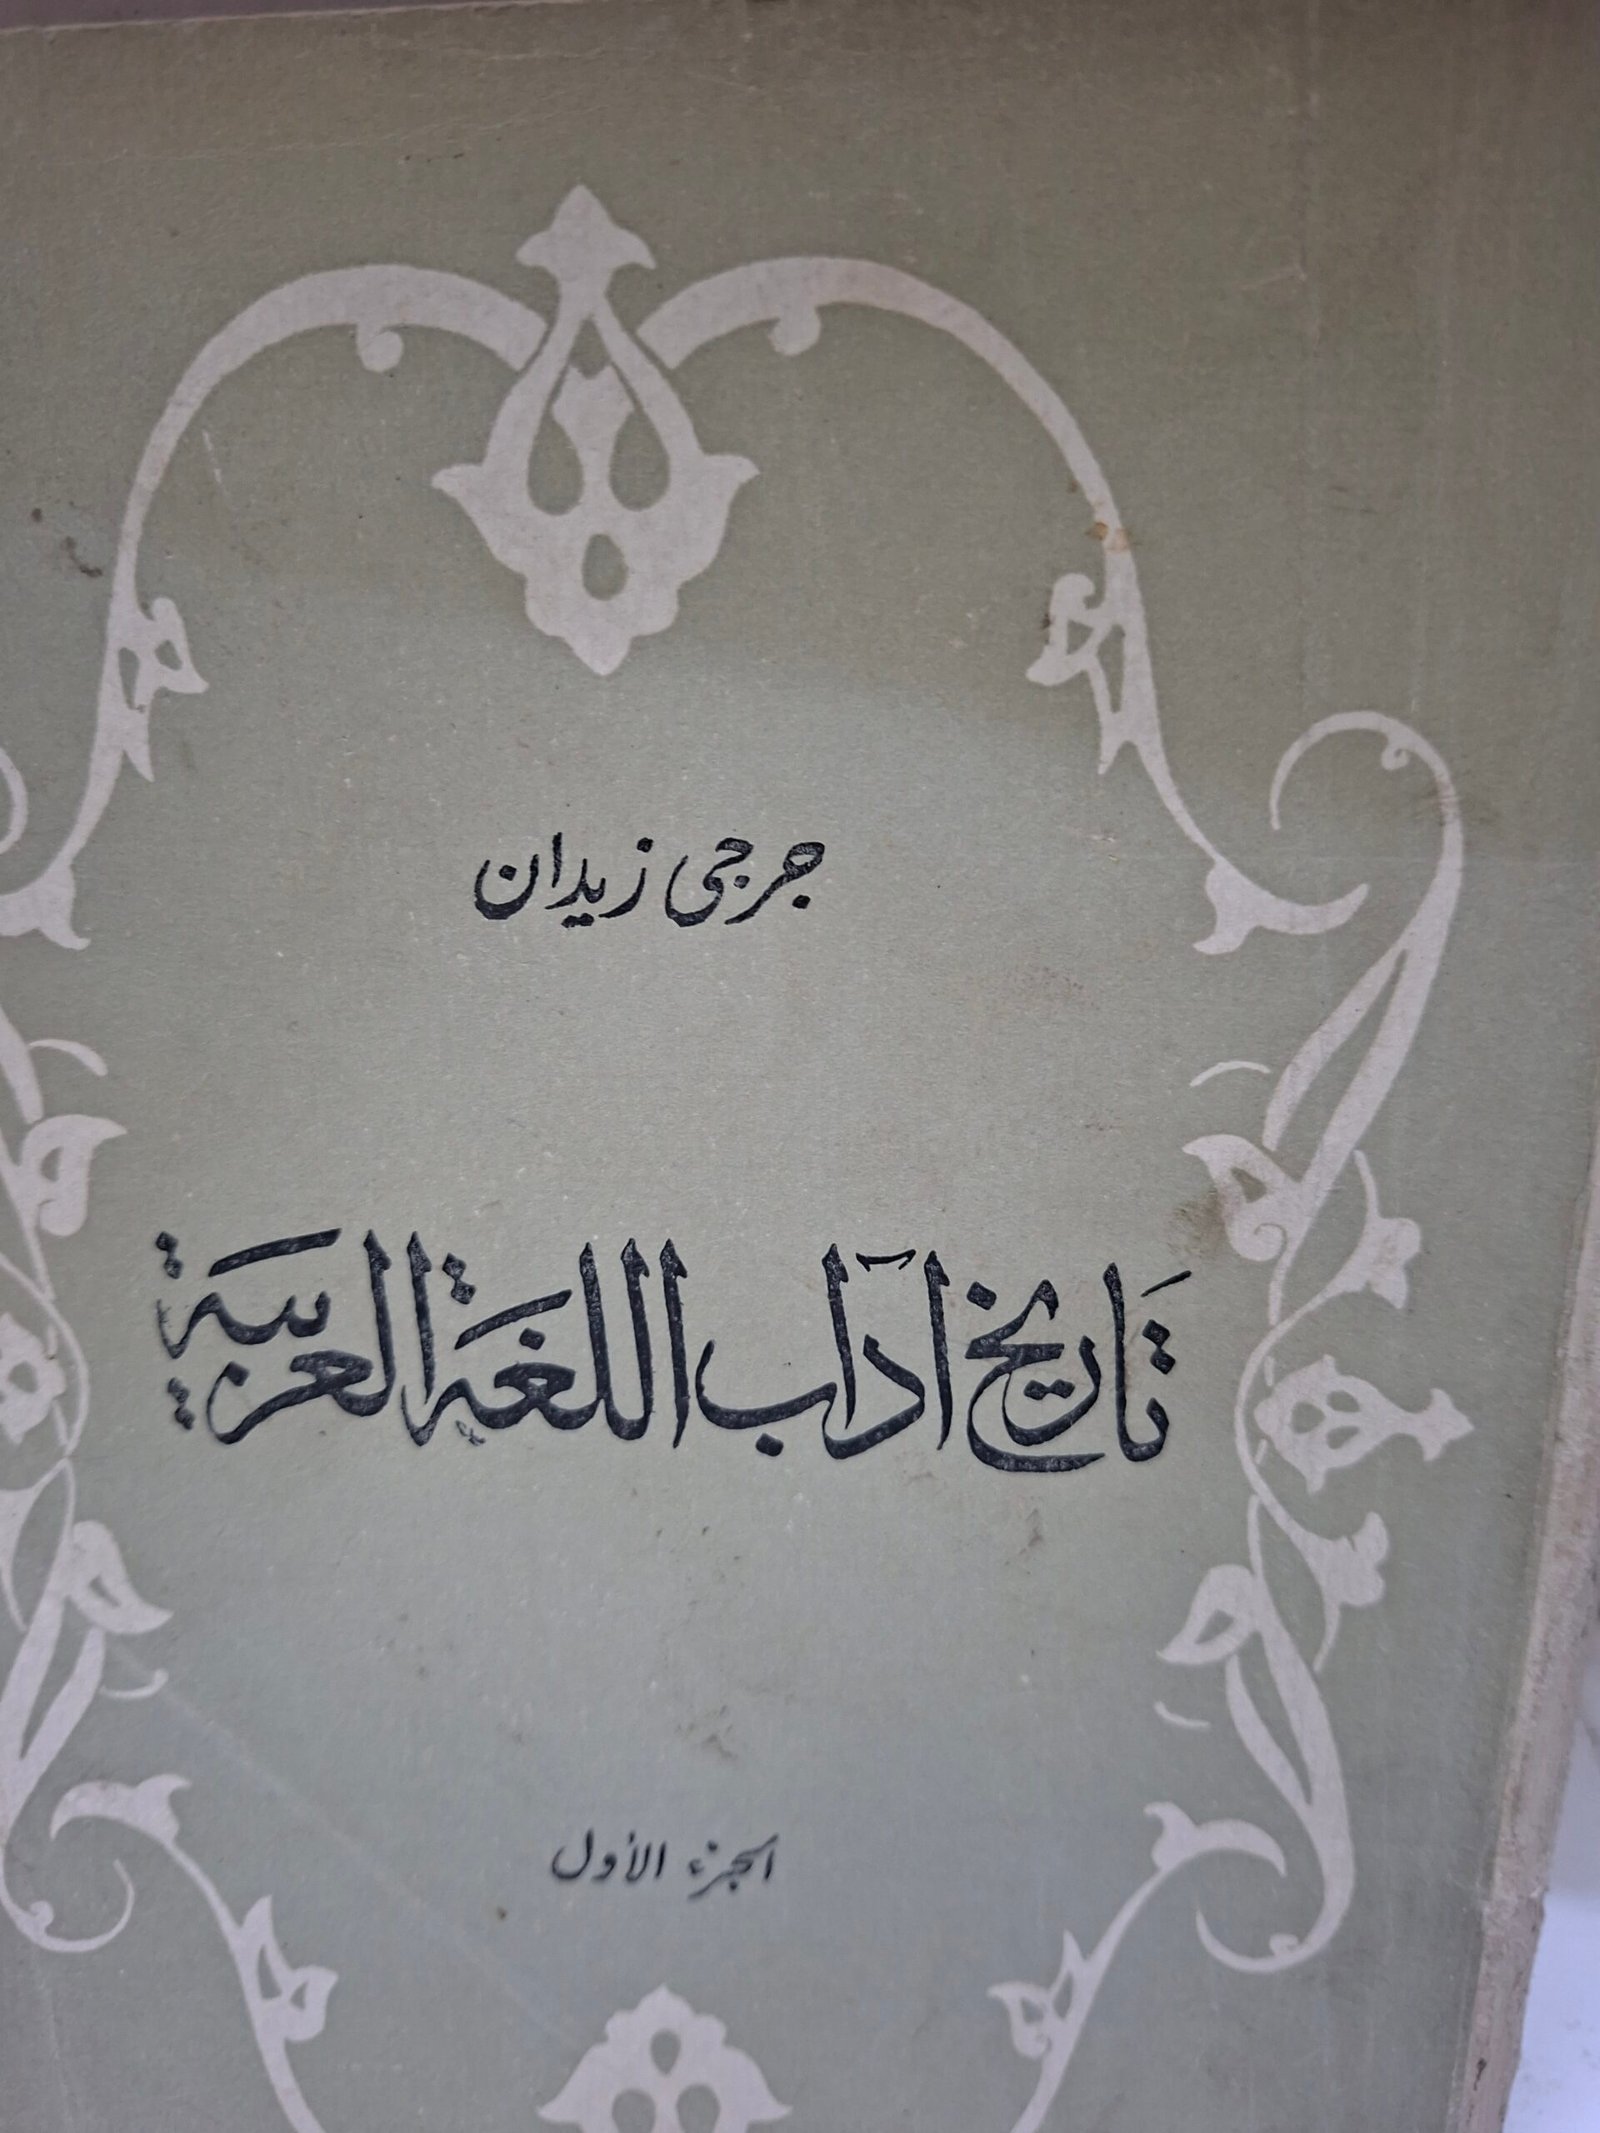 جرجى زيدان
تَاريخ آدَاب اللغة العربية
الجزء الأول